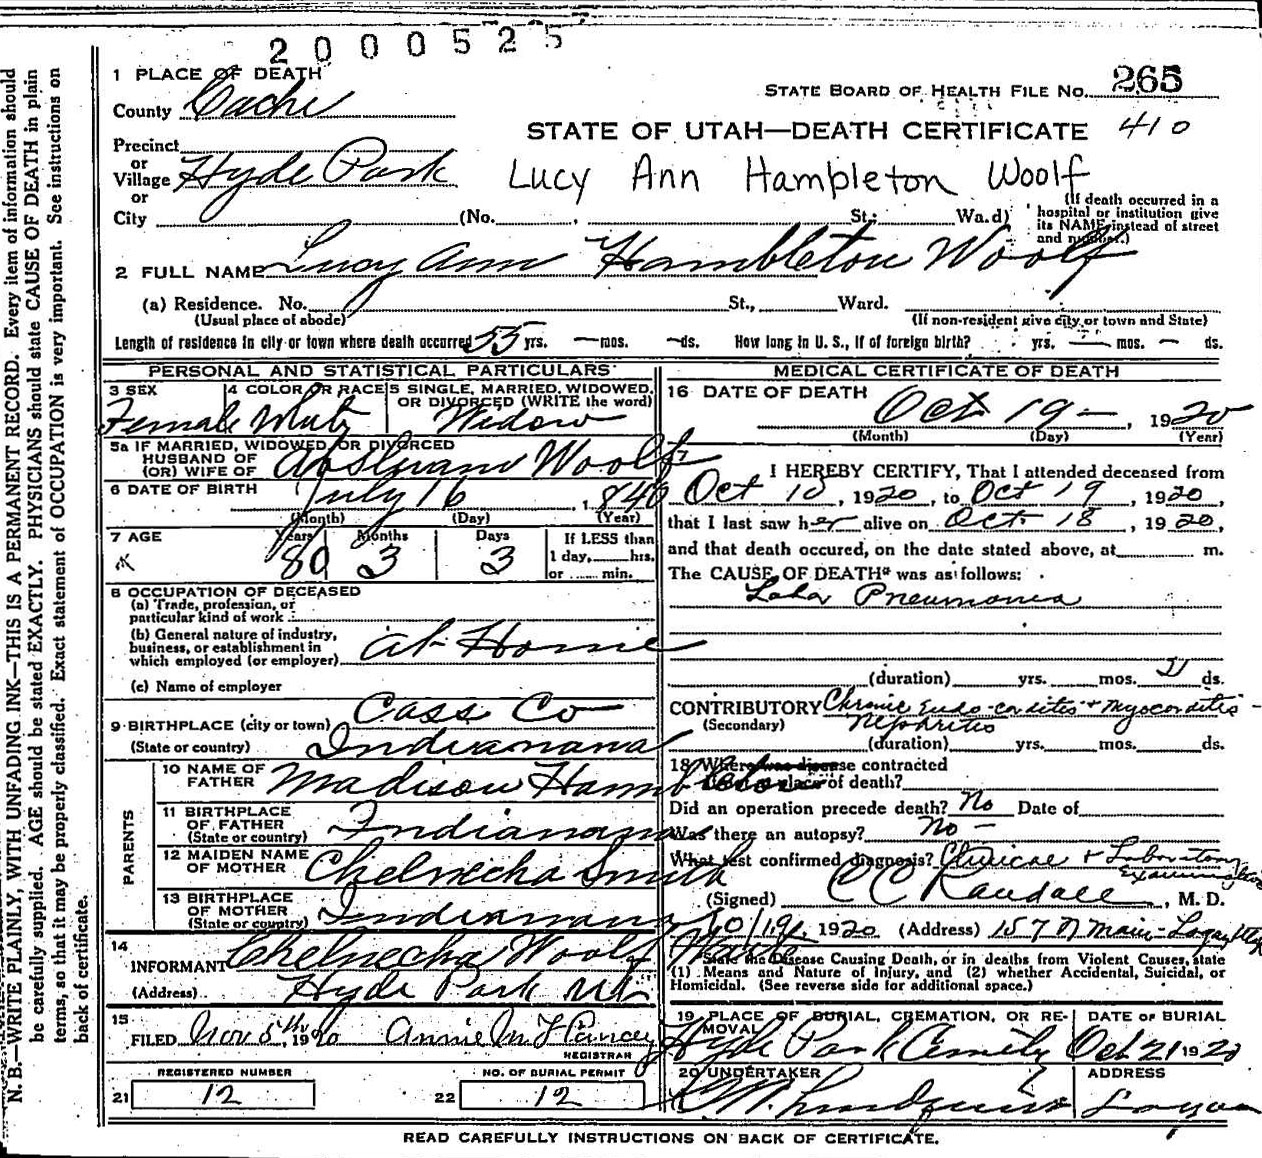 2000525
1 PLACE OF DEATH
County Cache
STATE BOARD OF HEALTH FILE NO. 265
STATE OF UTAH—DEATH CERTIFICATE 410
Precinct
or
Village Hyde Park
Lucy Ann Hampleton Woolf
or
City (No. , St.; Wa.d)
(If death occurred in a hospital or institution give its NAME instead of street and number.)
2 FULL NAME Lucy Ann Hambleton Woolf
(a) Residence. No. St., Ward.
(Usual place of abode) (If non-resident give city or town and State)
Length of residence in city or town where death occurred 55 yrs. — mos. — ds. How long in U. S., if of foreign birth? yrs. — mos. — ds.
PERSONAL AND STATISTICAL PARTICULARS
3 SEX Female
4 COLOR OR RACE White
5 SINGLE, MARRIED, WIDOWED, OR DIVORCED (WRITE the word) Widow
5a IF MARRIED, WIDOWED OR DIVORCED
HUSBAND OF
(OR) WIFE OF Woolf
6 DATE OF BIRTH July 16, 1840
(Month) (Day) (Year)
7 AGE Years 80 Months 3 Days 3
If LESS than 1 day, hrs. or min.
8 OCCUPATION OF DECEASED
(a) Trade, profession, or particular kind of work
(b) General nature of industry, business, or establishment in which employed (or employer) at Home
(c) Name of employer
9 BIRTHPLACE (city or town) Cass Co
(State or country) Indianana
PARENTS
10 NAME OF FATHER Madison Hambleton
11 BIRTHPLACE OF FATHER (State or country) Indianana
12 MAIDEN NAME OF MOTHER Chelnecha Smith
13 BIRTHPLACE OF MOTHER (State or country) Indianana
14
INFORMANT Chelnecha Woolf
(Address) Hyde Park Ut
15
FILED Nov 5th, 1920 Annie M
REGISTRAR
REGISTERED NUMBER
21 12
NO. OF BURIAL PERMIT
22 12
MEDICAL CERTIFICATE OF DEATH
16 DATE OF DEATH Oct 19 —, 1920
(Month) (Day) (Year)
17
I HEREBY CERTIFY, That I attended deceased from
Oct 10, 1920, to Oct 19, 1920,
that I last saw her alive on Oct. 18, 1920,
and that death occured, on the date stated above, at m.
The CAUSE OF DEATH* was as follows:
Lobar Pneumonia
(duration) yrs. mos. ds.
CONTRIBUTORY Chronic Endo-carditis + Myocarditis -
(Secondary) Nephritis
(duration) yrs. mos. ds.
18 Where was disease contracted
if not at place of death?
Did an operation precede death? No Date of
Was there an autopsy? No —
What test confirmed diagnosis? Clinical + Laboratory Examination
(Signed) C C Randall, M. D.
10/19, 1920 (Address) 157 N Main - Logan Utah
*State the Disease Causing Death, or in deaths from Violent Causes, state
(1) Means and Nature of Injury, and (2) whether Accidental, Suicidal, or
Homicidal. (See reverse side for additional space.)
19 PLACE OF BURIAL, CREMATION, OR REMOVAL
Hyde Park
DATE OF BURIAL
Oct 21 1920
20 UNDERTAKER
ADDRESS
Logan
READ CAREFULLY INSTRUCTIONS ON BACK OF CERTIFICATE.
N. B.—WRITE PLAINLY, WITH UNFADING INK—THIS IS A PERMANENT RECORD. Every item of information should
be carefully supplied. AGE should be stated EXACTLY. PHYSICIANS should state CAUSE OF DEATH in plain
terms, so that it may be properly classified. Exact statement of OCCUPATION is very important. See instructions on
back of certificate.